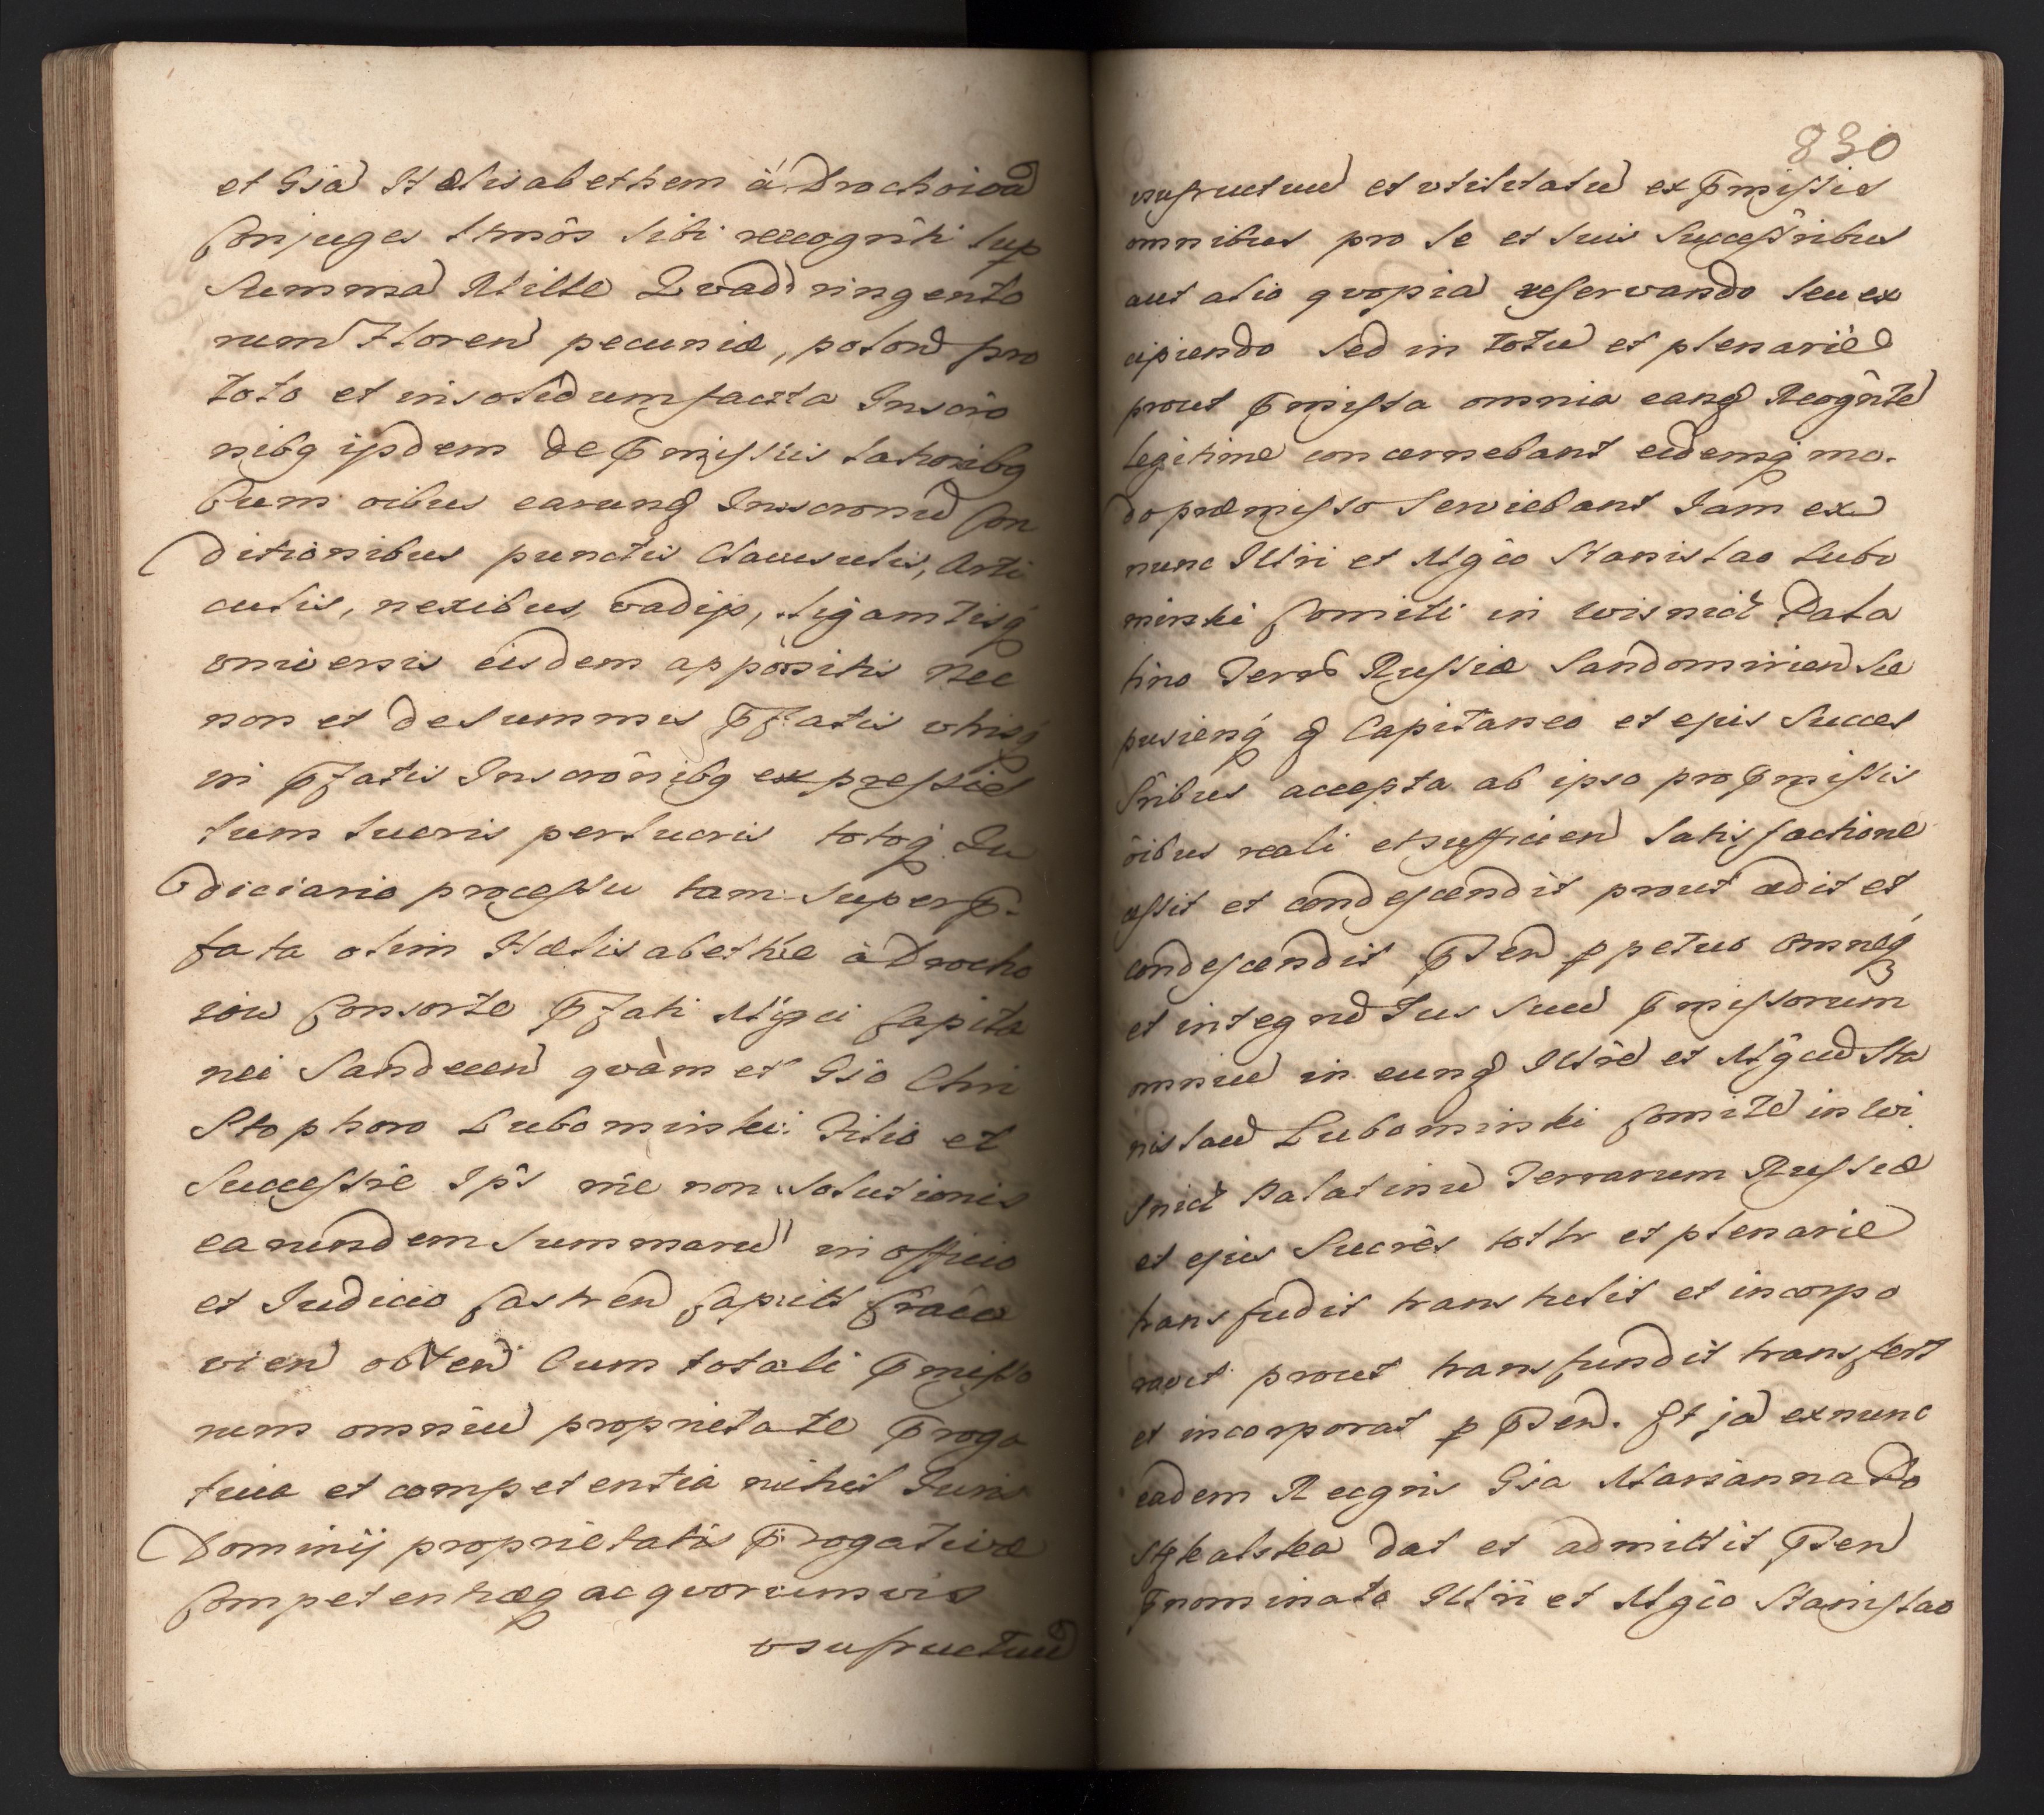 et Gsa͠ Hælisabethem à Drochoiow
Conjuges Itmôs sibi recogn̂ti sup
Summa͠ Mille Quadringento
rum Floren͠ pecuniæ, polon͠ pro
toto et insolidum facta Inscrô
nibq ipsdem de p̄missis latioribq
Cum oibus earunđ Inscronu͠ Con
ditionibus punctis Clausulis, Arti
culis, nexibus, vadijs, ligamtisq́
universis eisdem appositis nec
non et de Summis p̄fatis vtrisq́
in p̄fatis Inscrônibq expressis
tum lucris perlucris totoq́ Iu
diciario processu tam super p̄-
fata olim Hælisabethæ à Drocho
iow Consorte p̄fati Mgci Capita
nei Sandecen͠ quàm et Gso Chri
Stophoro Lubomirski Filio et
Successre Ips rne non solutionis
earundem Summaru͠ in officio
et Judicio Castren͠ Capitt Craco
vien͠ obten͠ Cum totali p̄misso
rum omniu͠ proprietate p̄roga
tiva et competentia nihil Juris
Dominij proprietatis p̄rogativæ
Competentiæq ac quorumvis
vsufructuu͠
830
vsufructuu͠ et vtilitatu͠ ex p̄missis
omnibus pro se et suis Successribus
aut alio quopia͠ reservando seu ex
cipiendo sed in totu͠ et plenarie
prout p̄missa omnia eanđ Recogn̂te͠
legitime concernebant eidemq́ mo-
do præmisso Serviebant Jam ex
nunc Illri et Mgco Stanislao Lubo
mirski Comiti in Wisnicz Pala
tino Terrar͠ Russiæ Sandomirien͠ Sce
pusienq́ đ Capitaneo et ejus Succes
Sribus accepta ab ipso pro p̄missis
ôibus reali et sufficien͠ satisfactione
cessit et condescendit prout cedit et
condescendit p̄sen͠ ꝑpetuo Omneq́
et integru͠ Jus suu͠ p̄missorum
omniu͠ in eunđ Illre͠ et Mgcu͠ Sta
nislau͠ Lubomirski Comite͠ in Wi
Snicz Palatinu͠ Terrarum Russiæ
et ejus Sucrês tottr et plenarie
transfudit transtulit et incorpo
ravit prout transfundit transfert
et incorporat ꝑ p̄sen͠. Et ja͠ ex nunc
eadem Recgns Gsa Marianna Po
Stkalska dat et admittit p̄sen͠
p̄nominato Illri et Mgco Stanislao